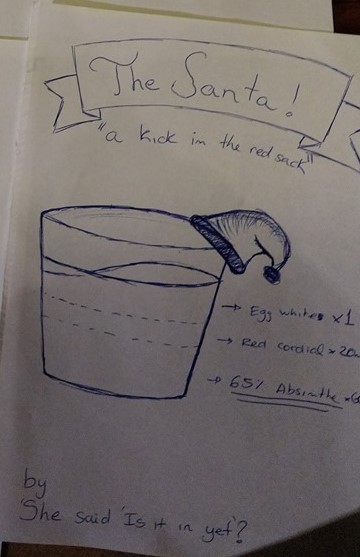 The Santa!
"a kick in the red sack"
→ Egg whites x1
→ Red cordial x 20m
→ 65% Absinthe x6
by
She said 'Is it in yet'?